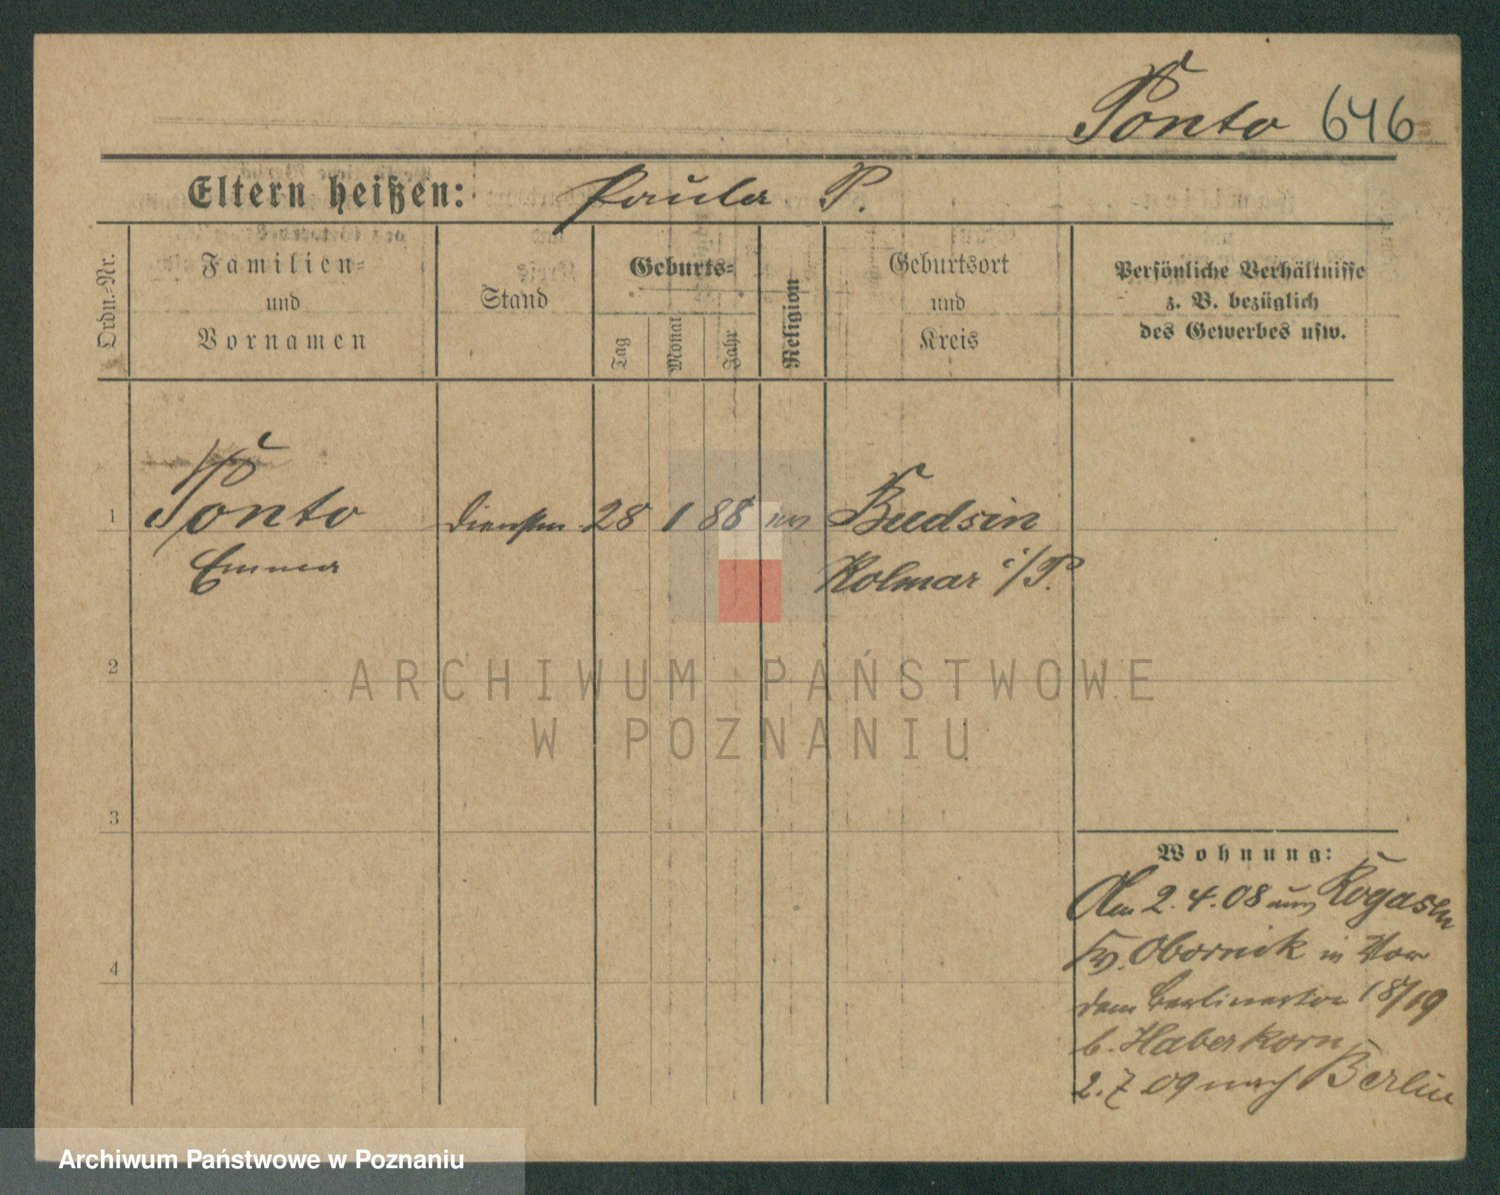 Ponto 646
Eltern heißen: Paula P.
Ordn.-Nr.
Familien-
und
Vornamen
Stand
Geburts-
Tag
Monat
Jahr
Religion
Geburtsort
und
Kreis
Persönliche Verhältnisse
z. B. bezüglich
des Gewerbes usw.
1 Ponto 28 1 88 Budsin
Emma Kolmar i/P.
2
3
4
Wohnung:
Am 2.4.08 aus Rogasen
Kr. Obornik in Vor
dem Berlinertor 18/19
b. Haberkorn
2.7.09 nach Berlin
ARCHIWUM PAŃSTWOWE
W POZNANIU
Archiwum Państwowe w Poznaniu